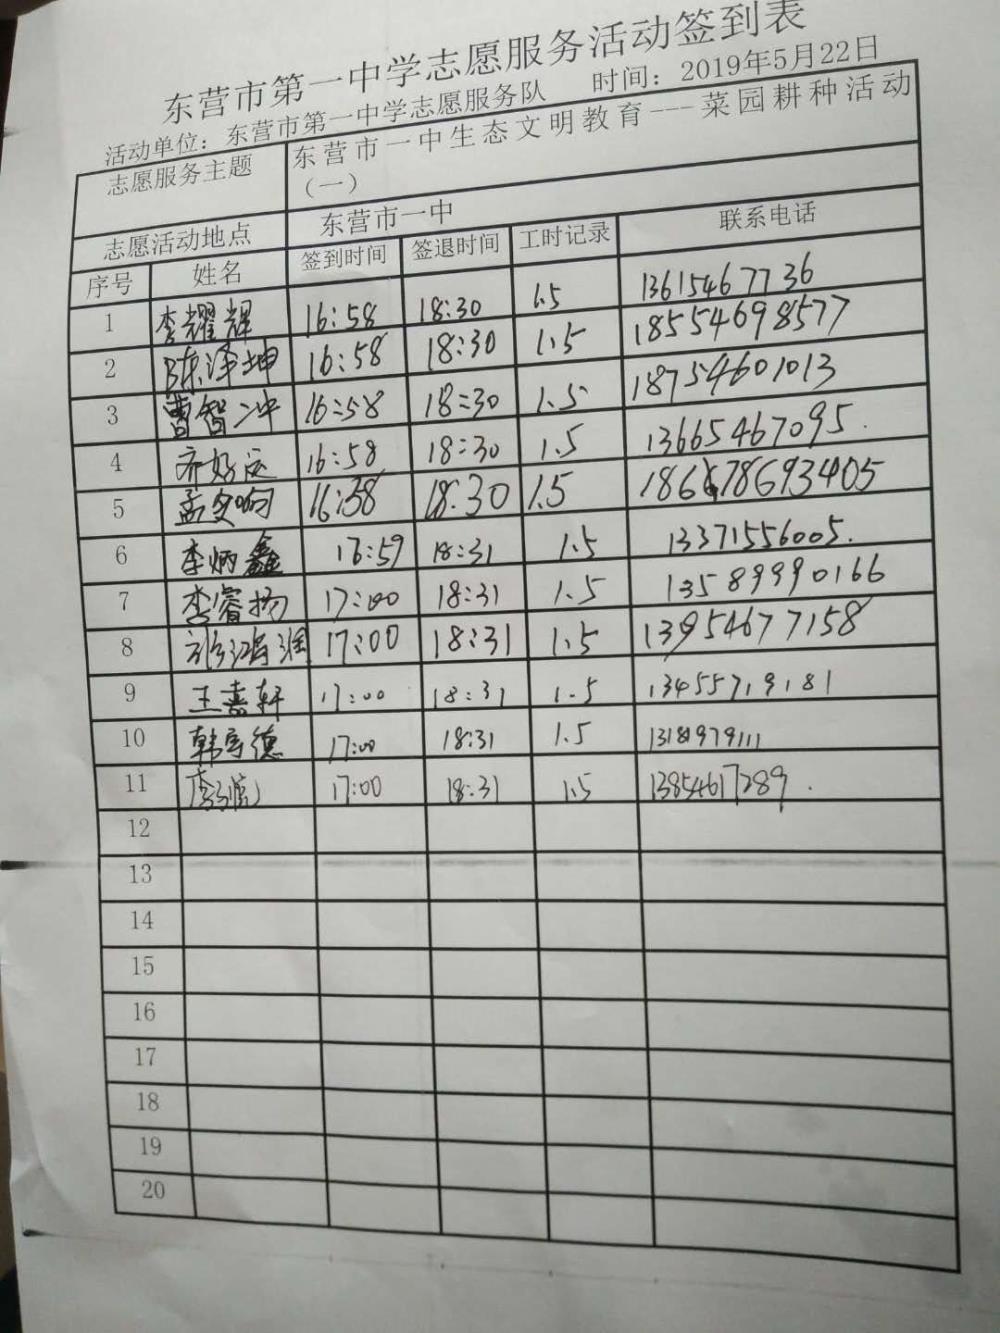 东营市第一中学志愿服务活动签到表
活动单位：东营市第一中学志愿服务队 时间：2019年5月22日
志愿服务主题 东营市一中生态文明教育---菜园耕种活动
（一）
志愿活动地点 东营市一中
序号 姓名 签到时间 签退时间 工时记录 联系电话
1 李耀辉 16:58 18:30 1.5 13615467736
2 陈泽坤 16:58 18:30 1.5 18554698577
3 曹智冲 16:58 18:30 1.5 18754601013
4 齐好运 16:58 18:30 1.5 13665467095.
5 16:58 18:30 1.5
6 李炳鑫 16:59 18:31 1.5 13371556005.
7 李睿扬 17:00 18:31 1.5 13589990166
8 17:00 18:31 1.5 13954677158
9 王嘉轩 17:00 18:31 1.5 13455719181
10 17:00 18:31 1.5
11 17:00 18:31 1.5 13854617289.
12
13
14
15
16
17
18
19
20